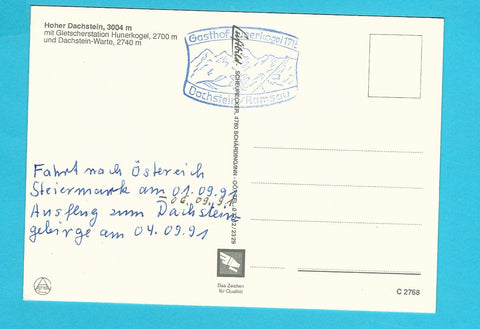 Hoher Dachstein, 3004 m
mit Gletscherstation Hunerkogel, 2700 m
und Dachstein-Warte, 2740 m
Gasthof Hunerkogel
Dachstein/Ramsau
SCHÄRDING/INN
4780
Fahrt nach Österreich
Steiermark am 01.09.91
– 06.09.91
Ausflug zum Dachstein-
gebirge am 04.09.91
Das Zeichen
für Qualität
C 2768